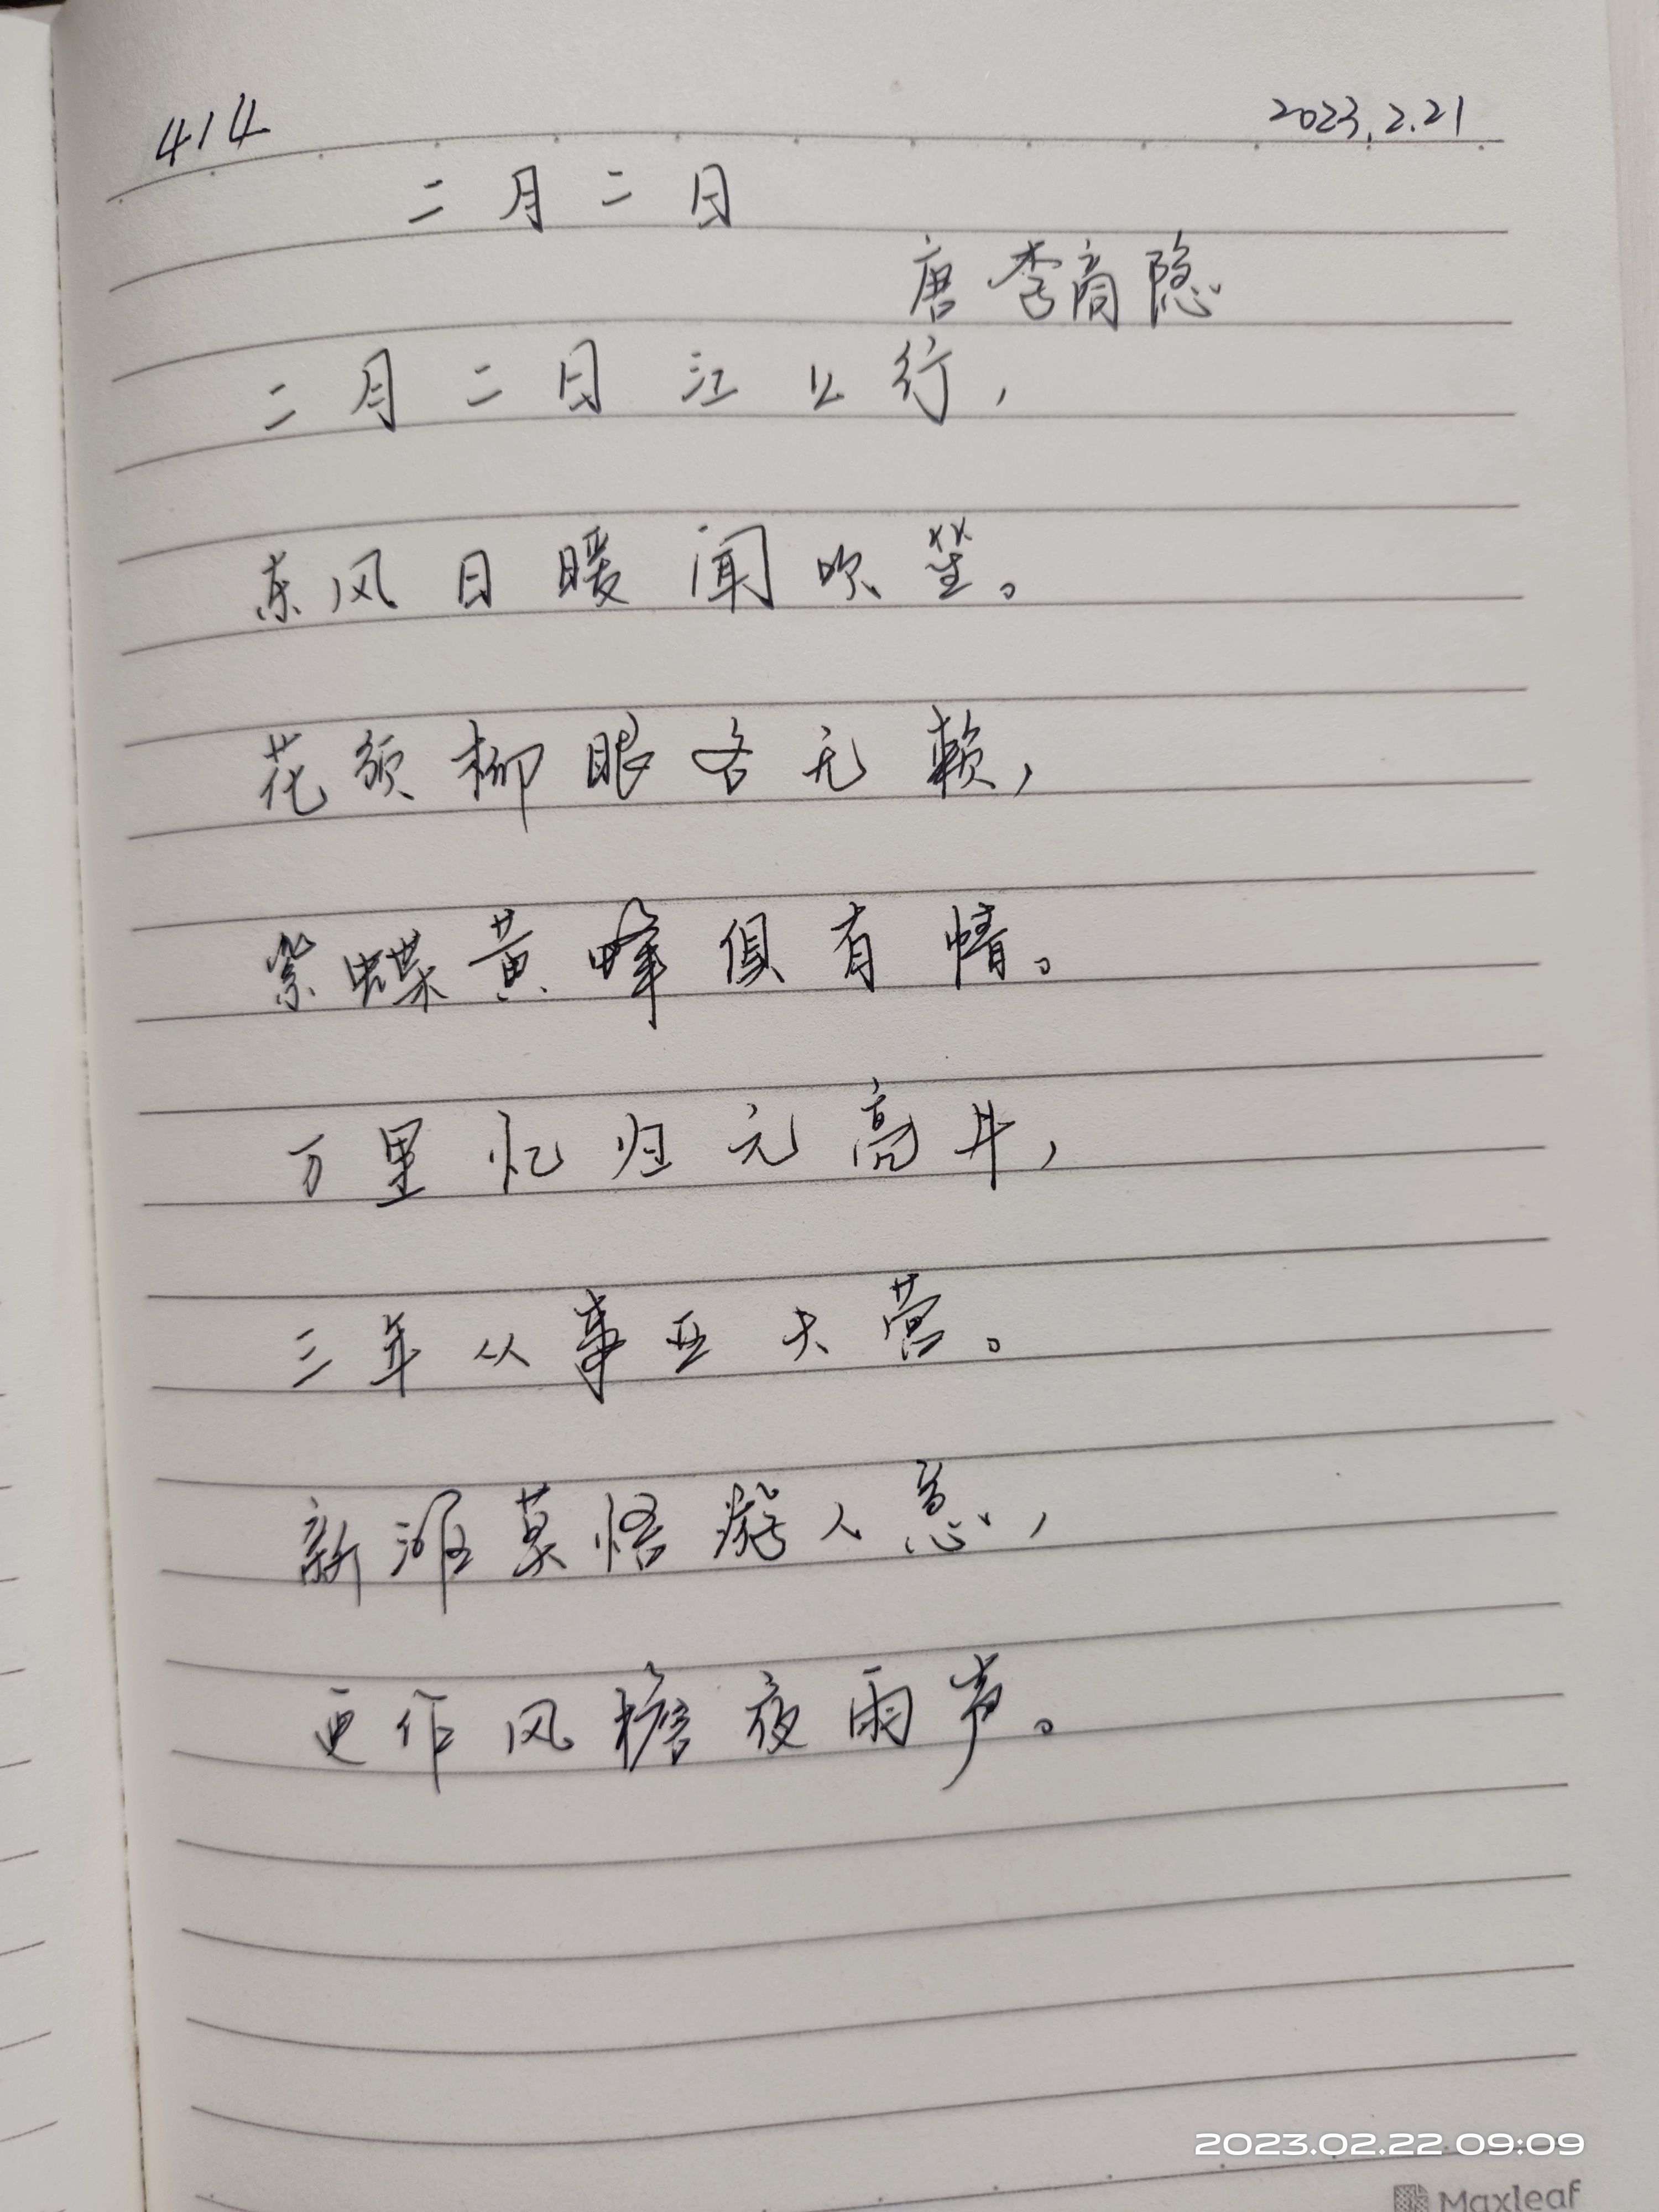 414 2023.2.21
二月二日
唐 李商隐
二月二日江上行，
东风日暖闻吹笙。
花须柳眼各无赖，
紫蝶黄蜂俱有情。
万里忆归元亮井，
三年从事亚夫营。
新滩莫悟游人意，
更作风檐夜雨声。
2023.02.22 09:09
Maxleaf